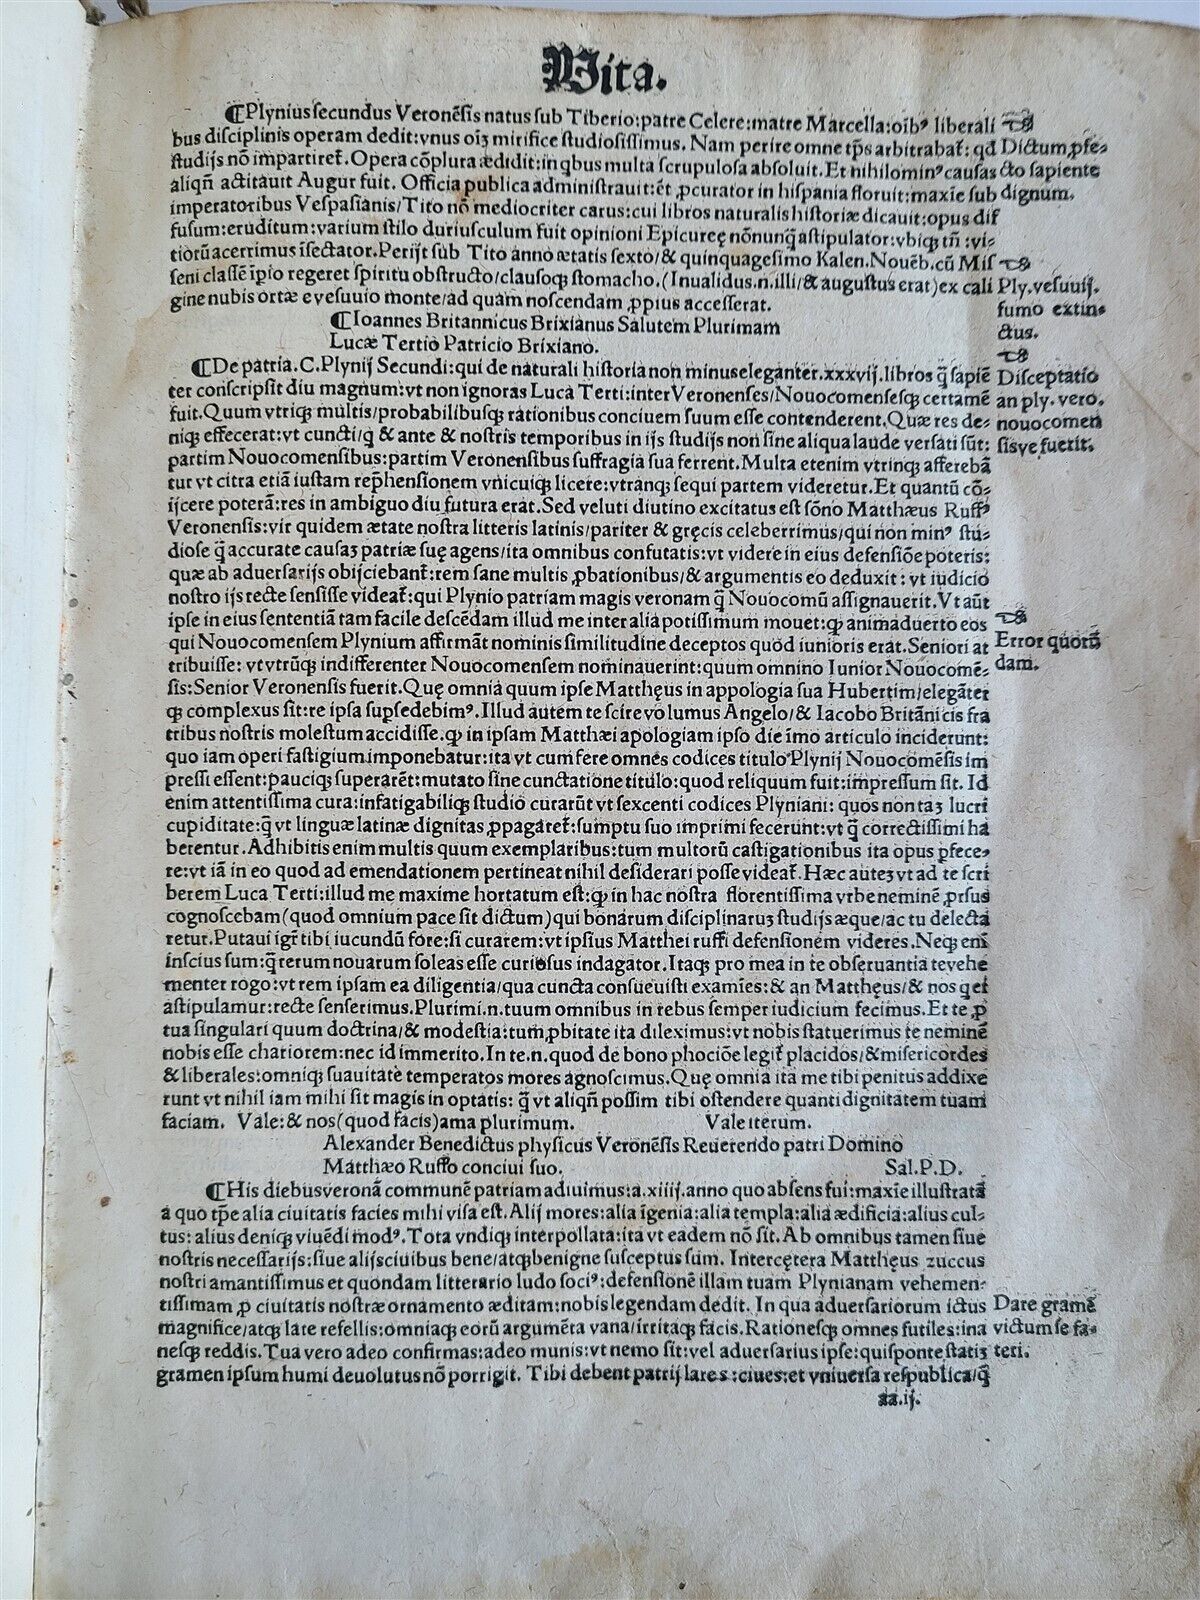 Vita.
¶Plynius secundus Veronēsis natus sub Tiberio:patre Celere:matre Marcella:oībꝰ liberali
bus disciplinis operam dedit:vnus oīꝫ mirifice studiosissimus. Nam perire omne tp̄s arbitrabat᷑: qđ
studijs nō impartiret᷑. Opera cōplura ædidit:in qbus multa scrupulosa absoluit. Et nihilominꝰ causas
aliqn̄ actitauit Augur fuit. Officia publica administrauit:et ꝓcurator in hispania floruit:maxīe sub
imperatoribus Vespasianis/Tito nō mediocriter carus:cui libros naturalis historiæ dicauit:opus dif
fusum:eruditum:varium stilo duriusculum fuit opinioni Epicureę nōnunq̄ astipulator:vbiqꝫ tn̄ :vi-
tiorū acerrimus īsectator. Perijt sub Tito anno ætatis sexto/& quinquagesimo Kalen. Nouēb. cū Mis
seni classē īpio regeret spiritu obstructo/clausoqꝫ stomacho.(Inualidus.n.illi/& augustus erat)ex cali
gine nubis ortæ e vesuuio monte/ad quam noscendam ꝓpius accesserat.
Dictum ꝑfe-
cto sapiente
dignum.
Ply.vesuuij.
fumo extin-
ctus.
¶Ioannes Britannicus Brixianus Salutem Plurimam
Lucæ Tertio Patricio Brixiano.
¶De patria.C.Plynij Secundi:qui de naturali historia non minus eleganter.xxxvij.libros q̄ sapiē
ter conscripsit diu magnum:vt non ignoras Luca Terti:inter Veronenses/Nouocomensesqꝫ certamē
fuit.Quum vtriqꝫ multis/probabilibusqꝫ rationibus conciuem suum esse contenderent.Quæ res de-
niqꝫ effecerat:vt cuncti/q̇ & ante & nostris temporibus in ijs studijs non sine aliqua laude versati sūt:
partim Nouocomensibus:partim Veronensibus suffragia sua ferrent.Multa etenim vtrinqꝫ afferebā
tur vt citra etiā iustam rep̄hensionem vnicuiqꝫ licere:vtranqꝫ sequi partem videretur.Et quantū cō-
ijcere poterā:res in ambiguo diu futura erat.Sed veluti diutino excitatus est sōno Matthæus Ruffꝰ
Veronensis:vir quidem ætate nostra litteris latinis/pariter & gręcis celeberrimus/qui non minꝰ stu-
diose q̄ accurate causaꝫ patriæ suę agens/ita omnibus confutatis:vt videre in eius defensiōe poteris:
quæ ab aduersarijs obijciebant᷑:rem sane multis ꝓbationibus/& argumentis eo deduxit : vt iudicio
nostro ijs recte sensisse videat᷑:qui Plynio patriam magis veronam q̄ Nouocomū assignauerit.Vt aūt
ipse in eius sententiā tam facile descēdam illud me inter alia potissimum mouet:qꝙ animaduerto eos
qui Nouocomensem Plynium affirmāt nominis similitudine deceptos quod iunioris erat.Seniori at
tribuisse: vt vtrūqꝫ indifferenter Nouocomensem nominauerint:quum omnino Iunior Nouocomē-
sis:Senior Veronensis fuerit.Quę omnia quum ipse Matthęus in appologia sua Hubertim/elegāter
qꝫ complexus sit:re ipsa supsedebimꝰ.Illud autem te scire volumus Angelo/& Iacobo Britānicis fra
tribus nostris molestum accidisse.qꝙ in ipsam Matthæi apologiam ipso die īmo articulo inciderunt:
quo iam operi fastigium imponebatur:ita vt cum fere omnes codices titulo Plynij Nouocomēsis im
pressi essent:pauciqꝫ superarēt:mutato sine cunctatione titulo:quod reliquum fuit:impressum sit. Id
enim attentissima cura:infatigabiliqꝫ studio curarūt vt sexcenti codices Plyniani: quos non taꝫ lucri
cupiditate:q̄ vt linguæ latinæ dignitas ꝓpagaret᷑:sumptu suo imprimi fecerunt:vt q̄ correctissimi ha
berentur.Adhibitis enim multis quum exemplaribus:tum multorū castigationibus ita opus ꝑfece-
re:vt iā in eo quod ad emendationem pertineat nihil desiderari posse videat᷑.Hæc auteꝫ vt ad te scri
berem Luca Terti:illud me maxime hortatum est:qꝙ in hac nostra florentissima vrbe neminē ꝓrsus
cognoscebam(quod omnium pace sit dictum)qui bonarum disciplinaruꝫ studijs æque/ac tu delecta
retur.Putaui igr̄ tibi iucundū fore:si curarem:vt ipsius Matthei ruffi defensionem videres.Neqꝫ enī
inscius sum:q̄ rerum nouarum soleas esse curiosus indagator.Itaqꝫ pro mea in te obseruantia te vehe
menter rogo:vt rem ipsam ea diligentia/qua cuncta consueuisti examīes:& an Matthęus/& nos q ei
astipulamur:recte senserimus.Plurimi.n.tuum omnibus in rebus semper iudicium fecimus.Et te ꝓ
tua singulari quum doctrina/& modestia:tum ꝓbitate ita dileximus:vt nobis statuerimus te neminē
nobis esse chariorem:nec id immerito.In te.n.quod de bono phociōe legit᷑ placidos/& misericordes
& liberales:omniqꝫ suauitate temperatos mores agnoscimus.Quę omnia ita me tibi penitus addixe
runt vt nihil iam mihi sit magis in optatis: q̄ vt aliqn̄ possim tibi ostendere quanti dignitatem tuam
faciam. Vale:& nos(quod facis)ama plurimum. Vale iterum.
Disceptatio
an ply. vero.
nouocomen
sisve fuerit.
Error quorū
dam.
Alexander Benedictus physicus Veronēsis Reuerendo patri Domino
Matthæo Ruffo conciui suo. Sal.P.D.
¶His diebus veronā communē patriam adiuimus:a.xiiij.anno quo absens fui:maxīe illustratā
a quo tp̄e alia ciuitatis facies mihi visa est.Alij mores:alia īgenia:alia templa:alia ædificia:alius cul-
tus: alius deniqꝫ viuēdi modꝰ.Tota vndiqꝫ interpollata:ita vt eadem nō sit.Ab omnibus tamen siue
nostris necessarijs:siue alijs ciuibus bene/atqꝫ benigne susceptus sum. Intercętera Matthęus zuccus
nostri amantissimus et quondam litterario ludo sociꝰ:defensionē illam tuam Plynianam vehemen-
tissimam ꝓ ciuitatis nostræ ornamento æditam:nobis legendam dedit. In qua aduersariorum ictus
magnifice/atqꝫ late refellis:omniaqꝫ eorū argumēta vana/irritaqꝫ facis.Rationesqꝫ omnes futiles:ina
nesqꝫ reddis.Tua vero adeo confirmas:adeo munis:vt nemo sit:vel aduersarius ipse:qui sponte statiꝫ
gramen ipsum humi deuolutus nō porrigit. Tibi debent patrij lares :ciues:et vniuersa respublica/q̄
Dare gramē
victum se fa-
teri.
aa.ij.